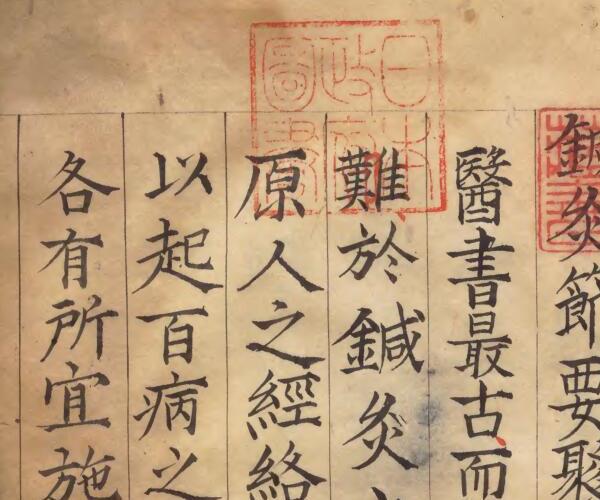 鍼灸節要聚
醫書最古而
難於鍼灸
原人之經絡
以起百病之
各有所宜施
日本政府圖書